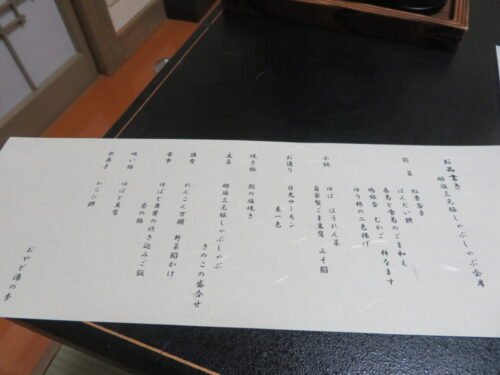 お品書き
那須三元豚しゃぶしゃぶ会席
前菜
紅葉杏子
ばんだい餅
春菊と青菊のごま和え
鴨錦杏 むかご 柿なます
ゆり根の三色揚げ
小鉢
ゆば ほうれん菜
自家製ごま豆腐 みそ餡
お造り
日光サーモン
妻一色
焼き物
鮎の塩焼き
主菜
那須三元豚しゃぶしゃぶ
きのこの盛合せ
強肴
れんこん万頭 野菜餡かけ
食事
ゆばと舞茸の炊き込みご飯
香の物
吸い物
ゆばと豆腐
水菓子
わらび餅
おやど湯の季